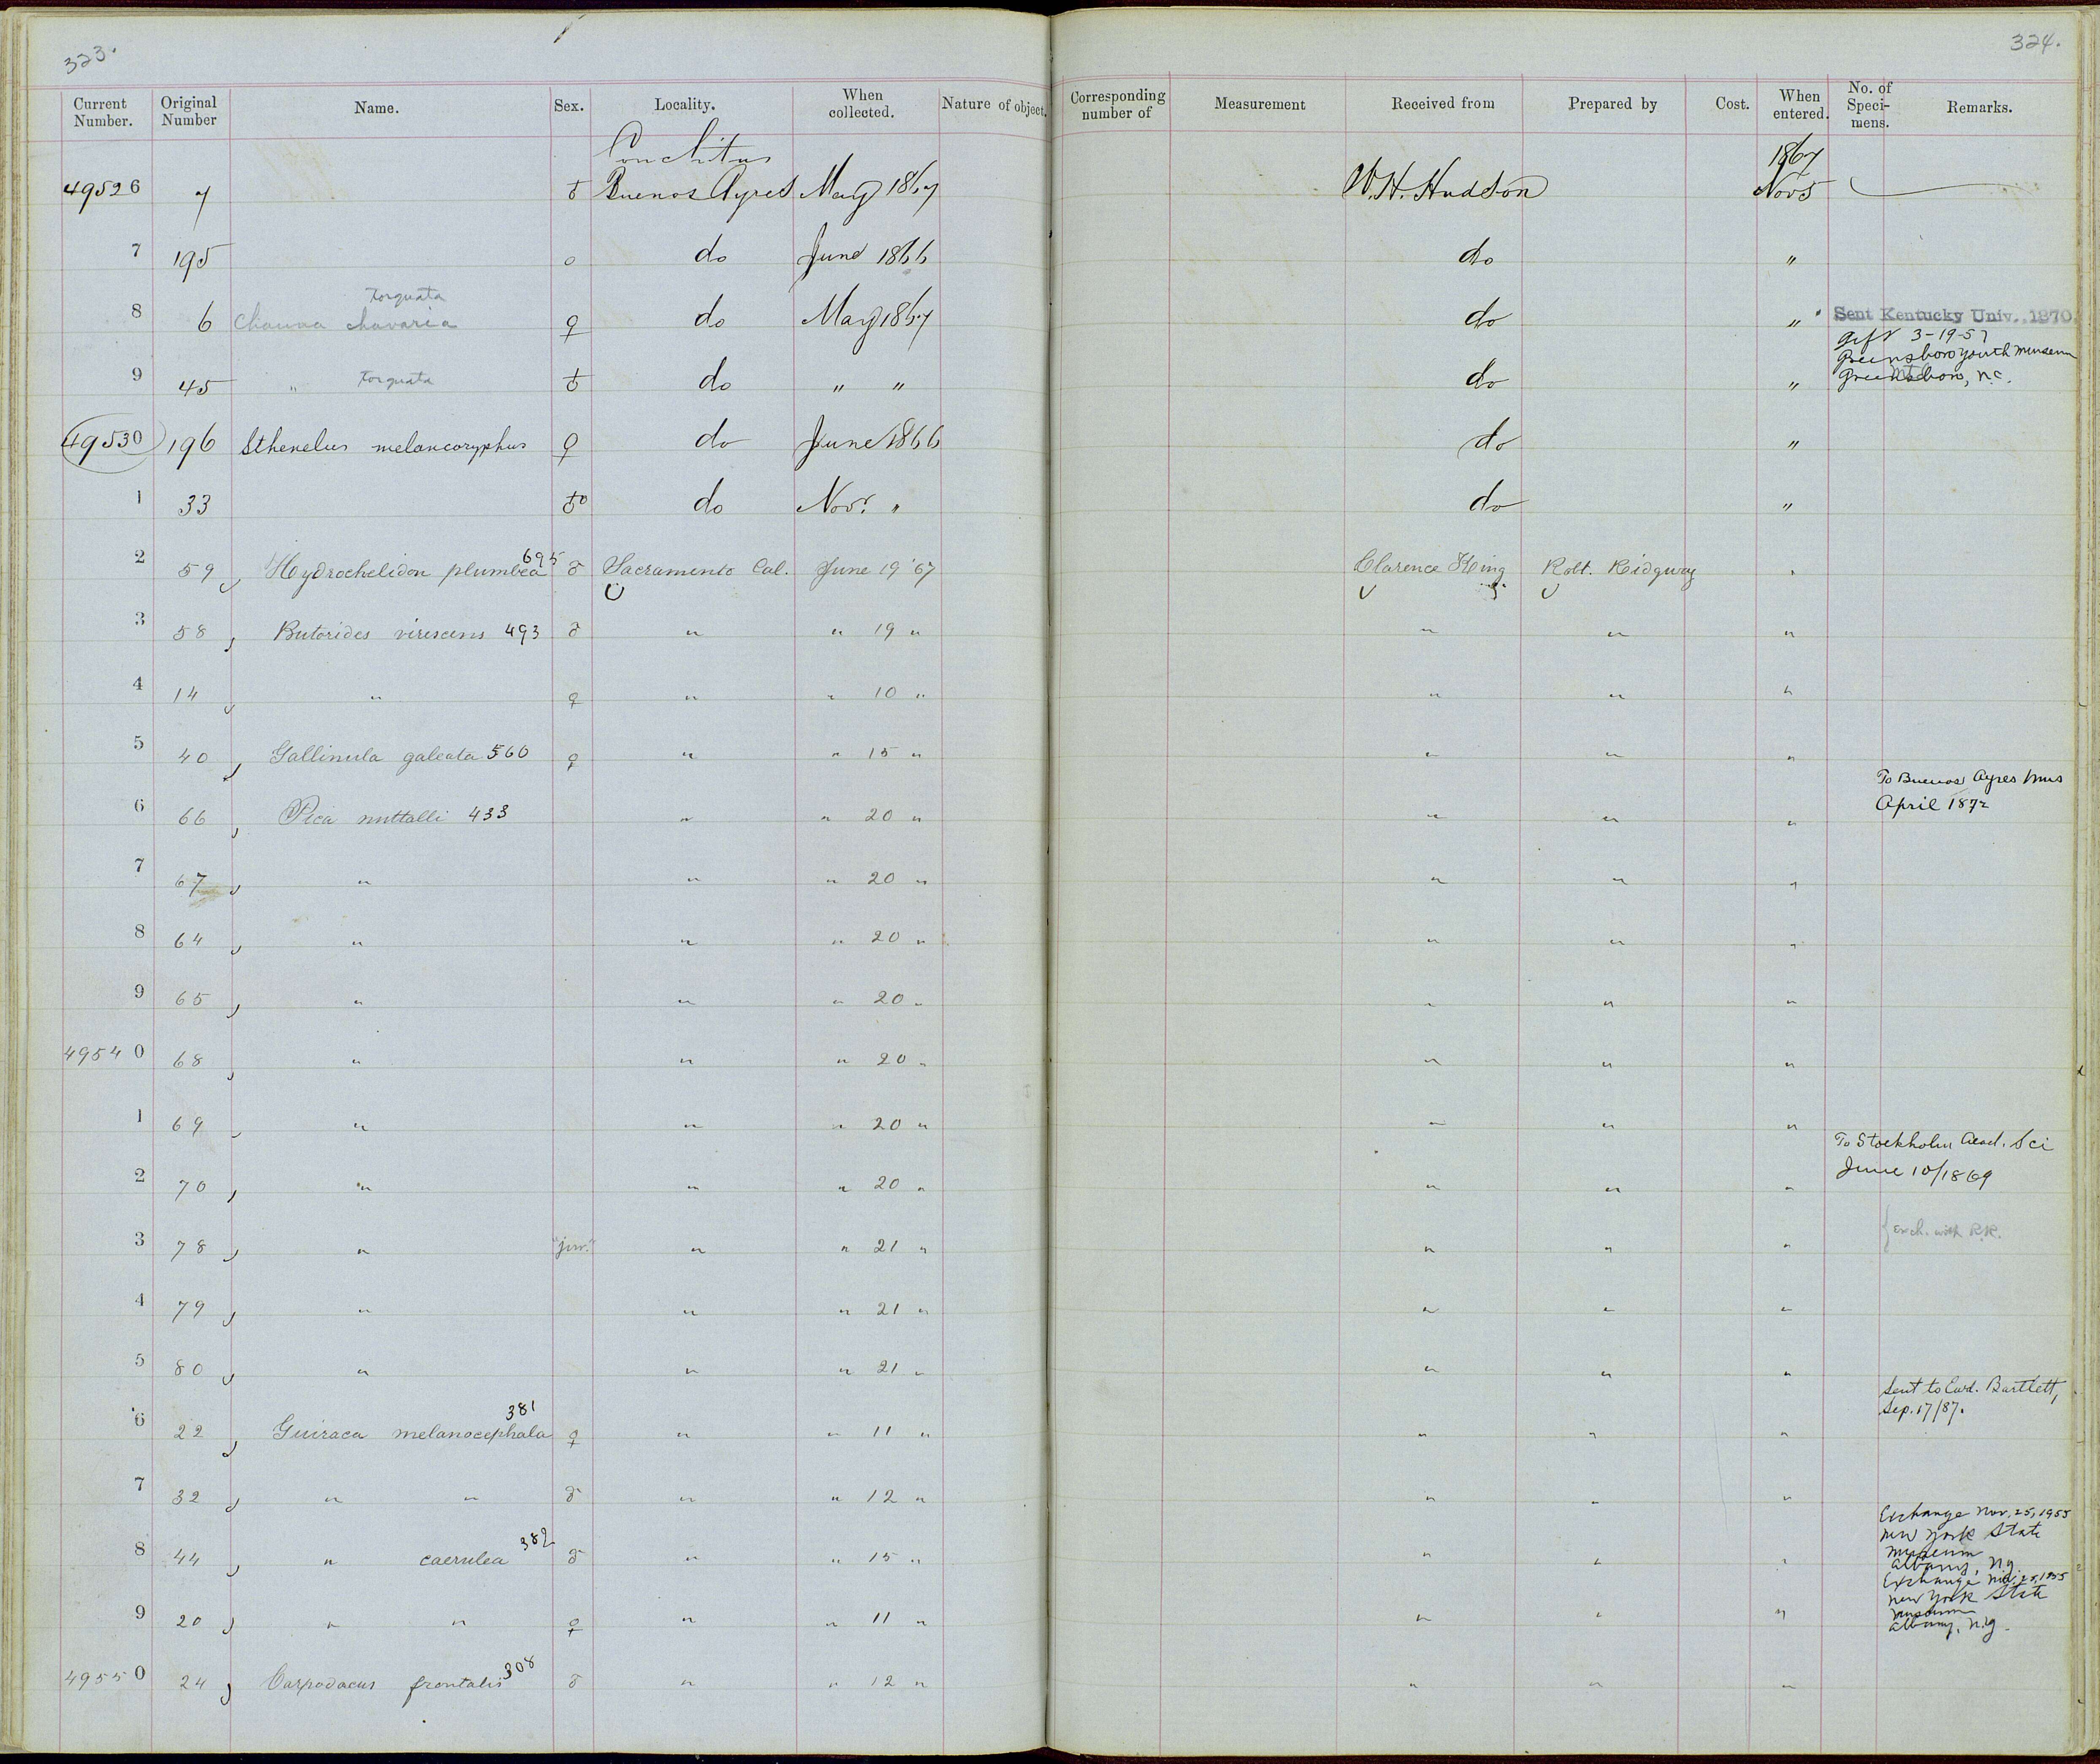 323.
324.
Current Number. Original Number Name. Sex. Locality. When collected. Nature of object. Corresponding number of Measurement Received from Prepared by Cost. When entered. No. of Speci- mens. Remarks.
Conchitas 1867
49526 7 ♂ Buenos Ayres May 1867 W. H. Hudson Nov 5
7 195 o do June 1866 do "
torquata
8 6 Chauna chavaria ♀ do May 1867 do " Sent Kentucky Univ. 1870.
gift 3-19-57
Greensboro Youth Museum
9 45 " torquata ♂ do " " do " Greensboro, N.C.
49530 196 Sthenelus melancoryphus ♀ do June 1866 do "
1 33 ♂o do Nov. " do "
2 59 Hydrochelidon plumbea 695 ♂ Sacramento Cal. June 19 '67 Clarence King Robt. Ridgway "
3 58 Butorides virescens 493 ♂ " " 19 " " " "
4 14 " ♀ " " 10 " " " "
5 40 Gallinula galeata 560 ♀ " " 15 " " " "
To Buenos Ayres Mus
April 1872
6 66 Pica nuttalli 433 " " 20 " " " "
7 67 " " " 20 " " " "
8 64 " " " 20 " " " "
9 65 " " " 20 " " " "
49540 68 " " " 20 " " " "
1 69 " " " 20 " " " "
To Stockholm Acad. Sci
June 10/1869
2 70 " " " 20 " " " "
3 78 " "juv." " " 21 " " " " { Exch. with R.R.
4 79 " " " 21 " " " "
5 80 " " " 21 " " " "
Sent to Edwd. Bartlett,
Sep. 17/87.
6 22 Guiraca melanocephala 381 ♀ " " 11 " " " "
7 32 " " ♂ " " 12 " " " "
Exchange Nov. 25, 1955
New York State
Museum
8 44 " caerulea 382 ♂ " " 15 " " " " Albany, N.Y.
Exchange Nov. 25, 1955
New York State
Museum
9 20 " " ♀ " " 11 " " " " Albany, N.Y.
49550 24 Carpodacus frontalis 308 ♂ " " 12 " " " "